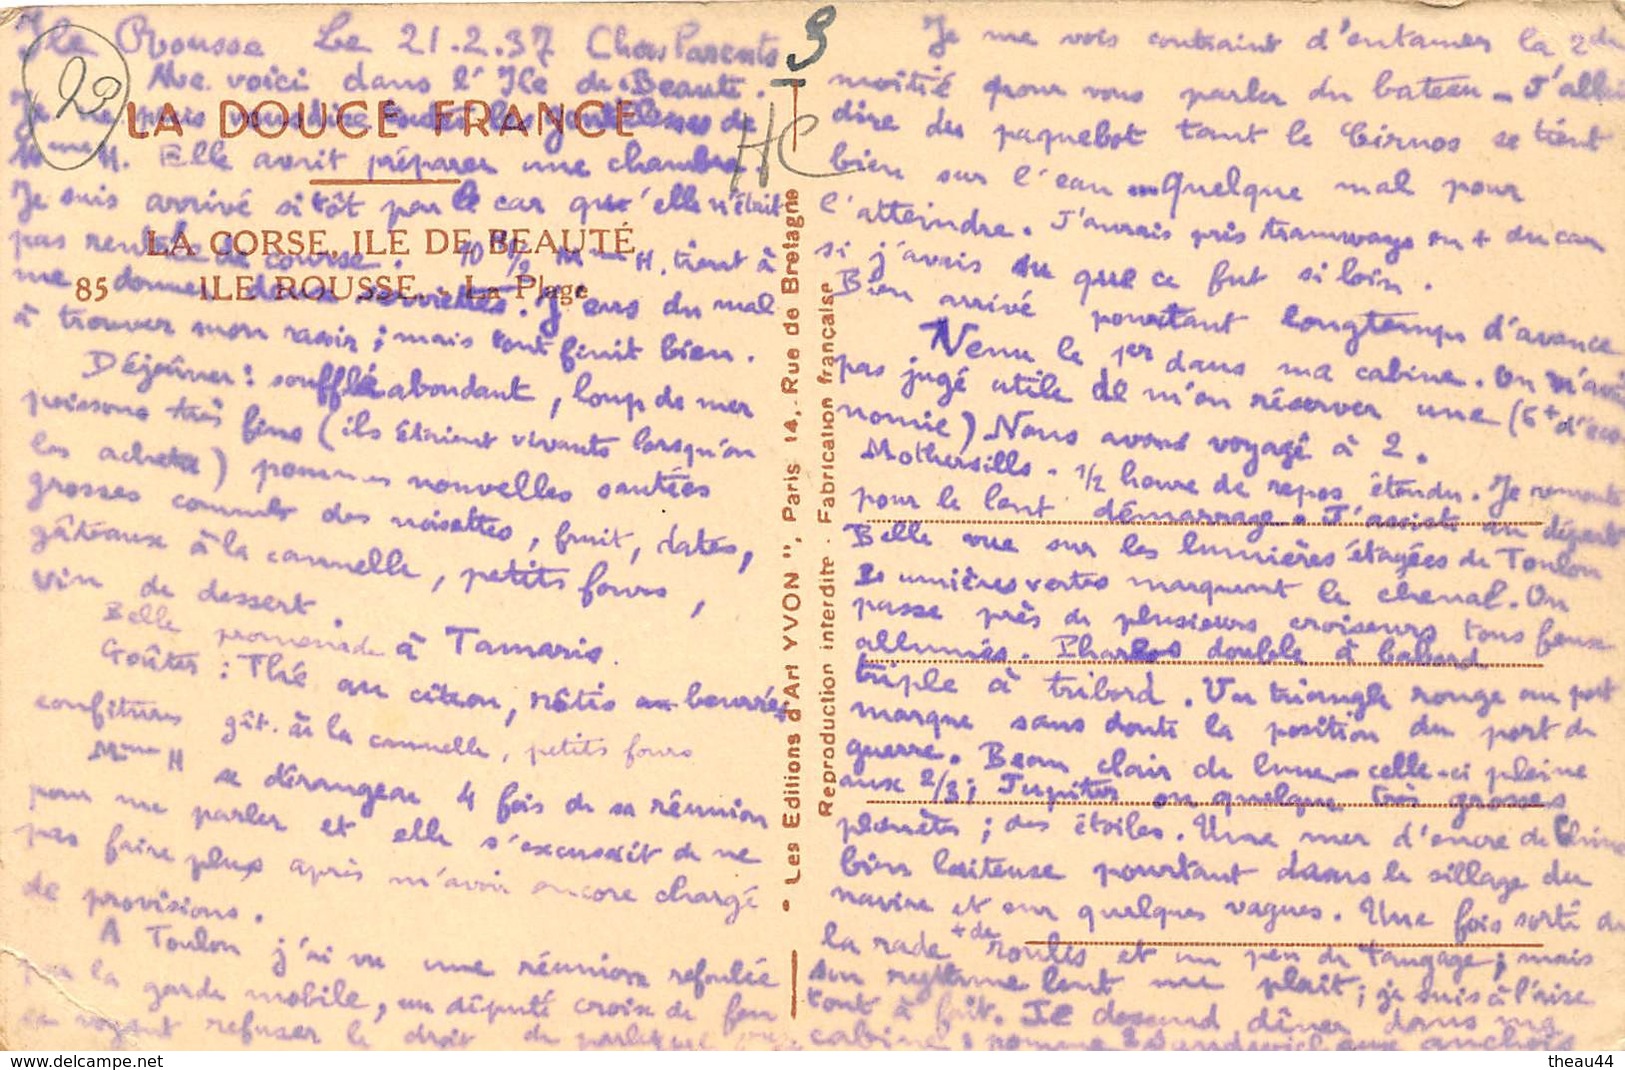 Ile Rousse Le 21.2.37 Chers Parents
Me voici dans l'Ile de Beauté.
Je ne puis vous dire toutes les gentillesses de
Mme H. Elle avait préparer une chambre.
Je suis arrivé si tôt par le car qu'elle n'était
pas rentrée de course. 10h 1/2 Mme H. tient à
me donner deux serviettes. J'eus du mal
à trouver mon rasoir ; mais tout finit bien.
Déjeûner : soufflé abondant, loup de mer
poissons très fins (ils étaient vivants lorsqu'on
les acheta) pommes nouvelles sautées
grosses comme des noisettes, fruit, dates,
gâteaux à la cannelle, petits fours,
vin de dessert.
Belle promenade à Tamaris.
Goûter : Thé au citron, rôtis au beurre,
confitures gât. à la cannelle, petits fours
Mme H se dérangea 4 fois de sa réunion
pour me parler et elle s'excusait de ne
pas faire plus après m'avoir encore chargé
de provisions.
A Toulon j'ai vu une réunion refoulée
par la garde mobile, un député croix de feu
se voyant refuser le droit de parler
LA DOUCE FRANCE
LA CORSE, ILE DE BEAUTÉ
85 ILE ROUSSE. - La Plage
20
9
HC
• Les Editions d'Art YVON", Paris 14, Rue de Bretagne
Reproduction interdite - Fabrication française
Je me vois contraint d'entamer la 2de
moitié pour vous parler du bateau - J'allais
dire du paquebot tant le Cirnos se tient
bien sur l'eau - Quelque mal pour
l'atteindre. J'aurais pris tramways en + du car
si j'avais su que ce fut si loin.
Bien arrivé pourtant longtemps d'avance
Venu le 1er dans ma cabine. On n'avait
pas jugé utile de m'en réserver une (6+ d'éco-
nomie) Nous avons voyagé à 2.
Mothersills - 1/2 heure de repos étendu. Je remonte
pour le lent démarrage. J'assiste au départ
Belle vue sur les lumières étagées de Toulon
Lumières vertes marquent le chenal. On
passe près de plusieurs croiseurs tous feux
allumés. Phares double à babord
triple à tribord. Un triangle rouge au port
marque sans doute la position du port de
guerre. Beau clair de lune - celle-ci pleine
aux 2/3 ; Jupiter ou quelque très grosses
planètes ; des étoiles. Une mer d'encre de Chine
bien laiteuse pourtant dans le sillage du
navire et sur quelques vagues. Une fois sorti de
la rade + de roulis et un peu de tangage ; mais
son rythme lent me plaît ; je suis à l'aise
tout à fait. Je descend dîner dans ma
cabine : pomme 2 sandwich aux anchois
theau44